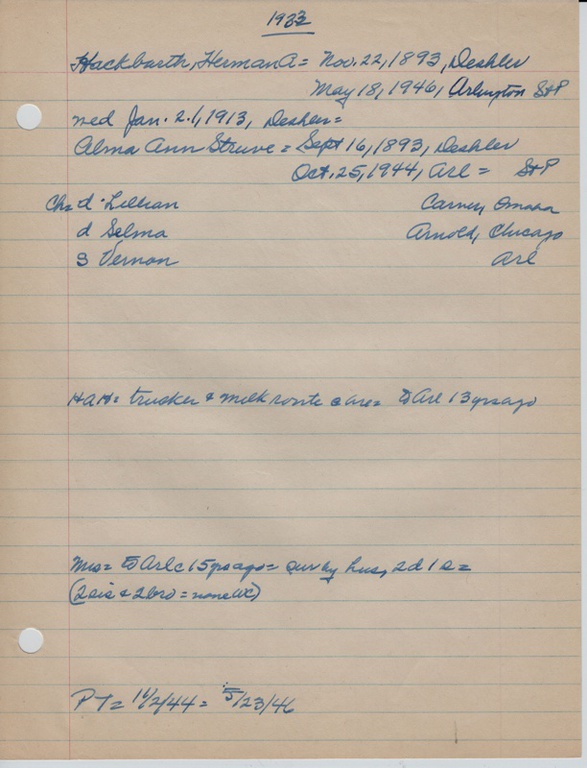 1933
Hackbarth, Herman A = Nov. 22, 1893, Deshler
May 18, 1946, Arlington S+P
Wed Jan. 21, 1913, Deshler =
Alma Ann Struve = Sept 16, 1893, Deshler
Oct. 25, 1944, Arl = S+P
Chs d Lillian Carney, Omaha
d Selma Arnold, Chicago
s Vernon Arl
HAH = trucker + milk route @ Arl = to Arl 13 yrs ago
Mrs = to Arl c 15 yrs ago = surv by hus, 2d 1 s =
(2 sis + 2 bro = none WC)
PT = 11/2/44 = 5/23/46